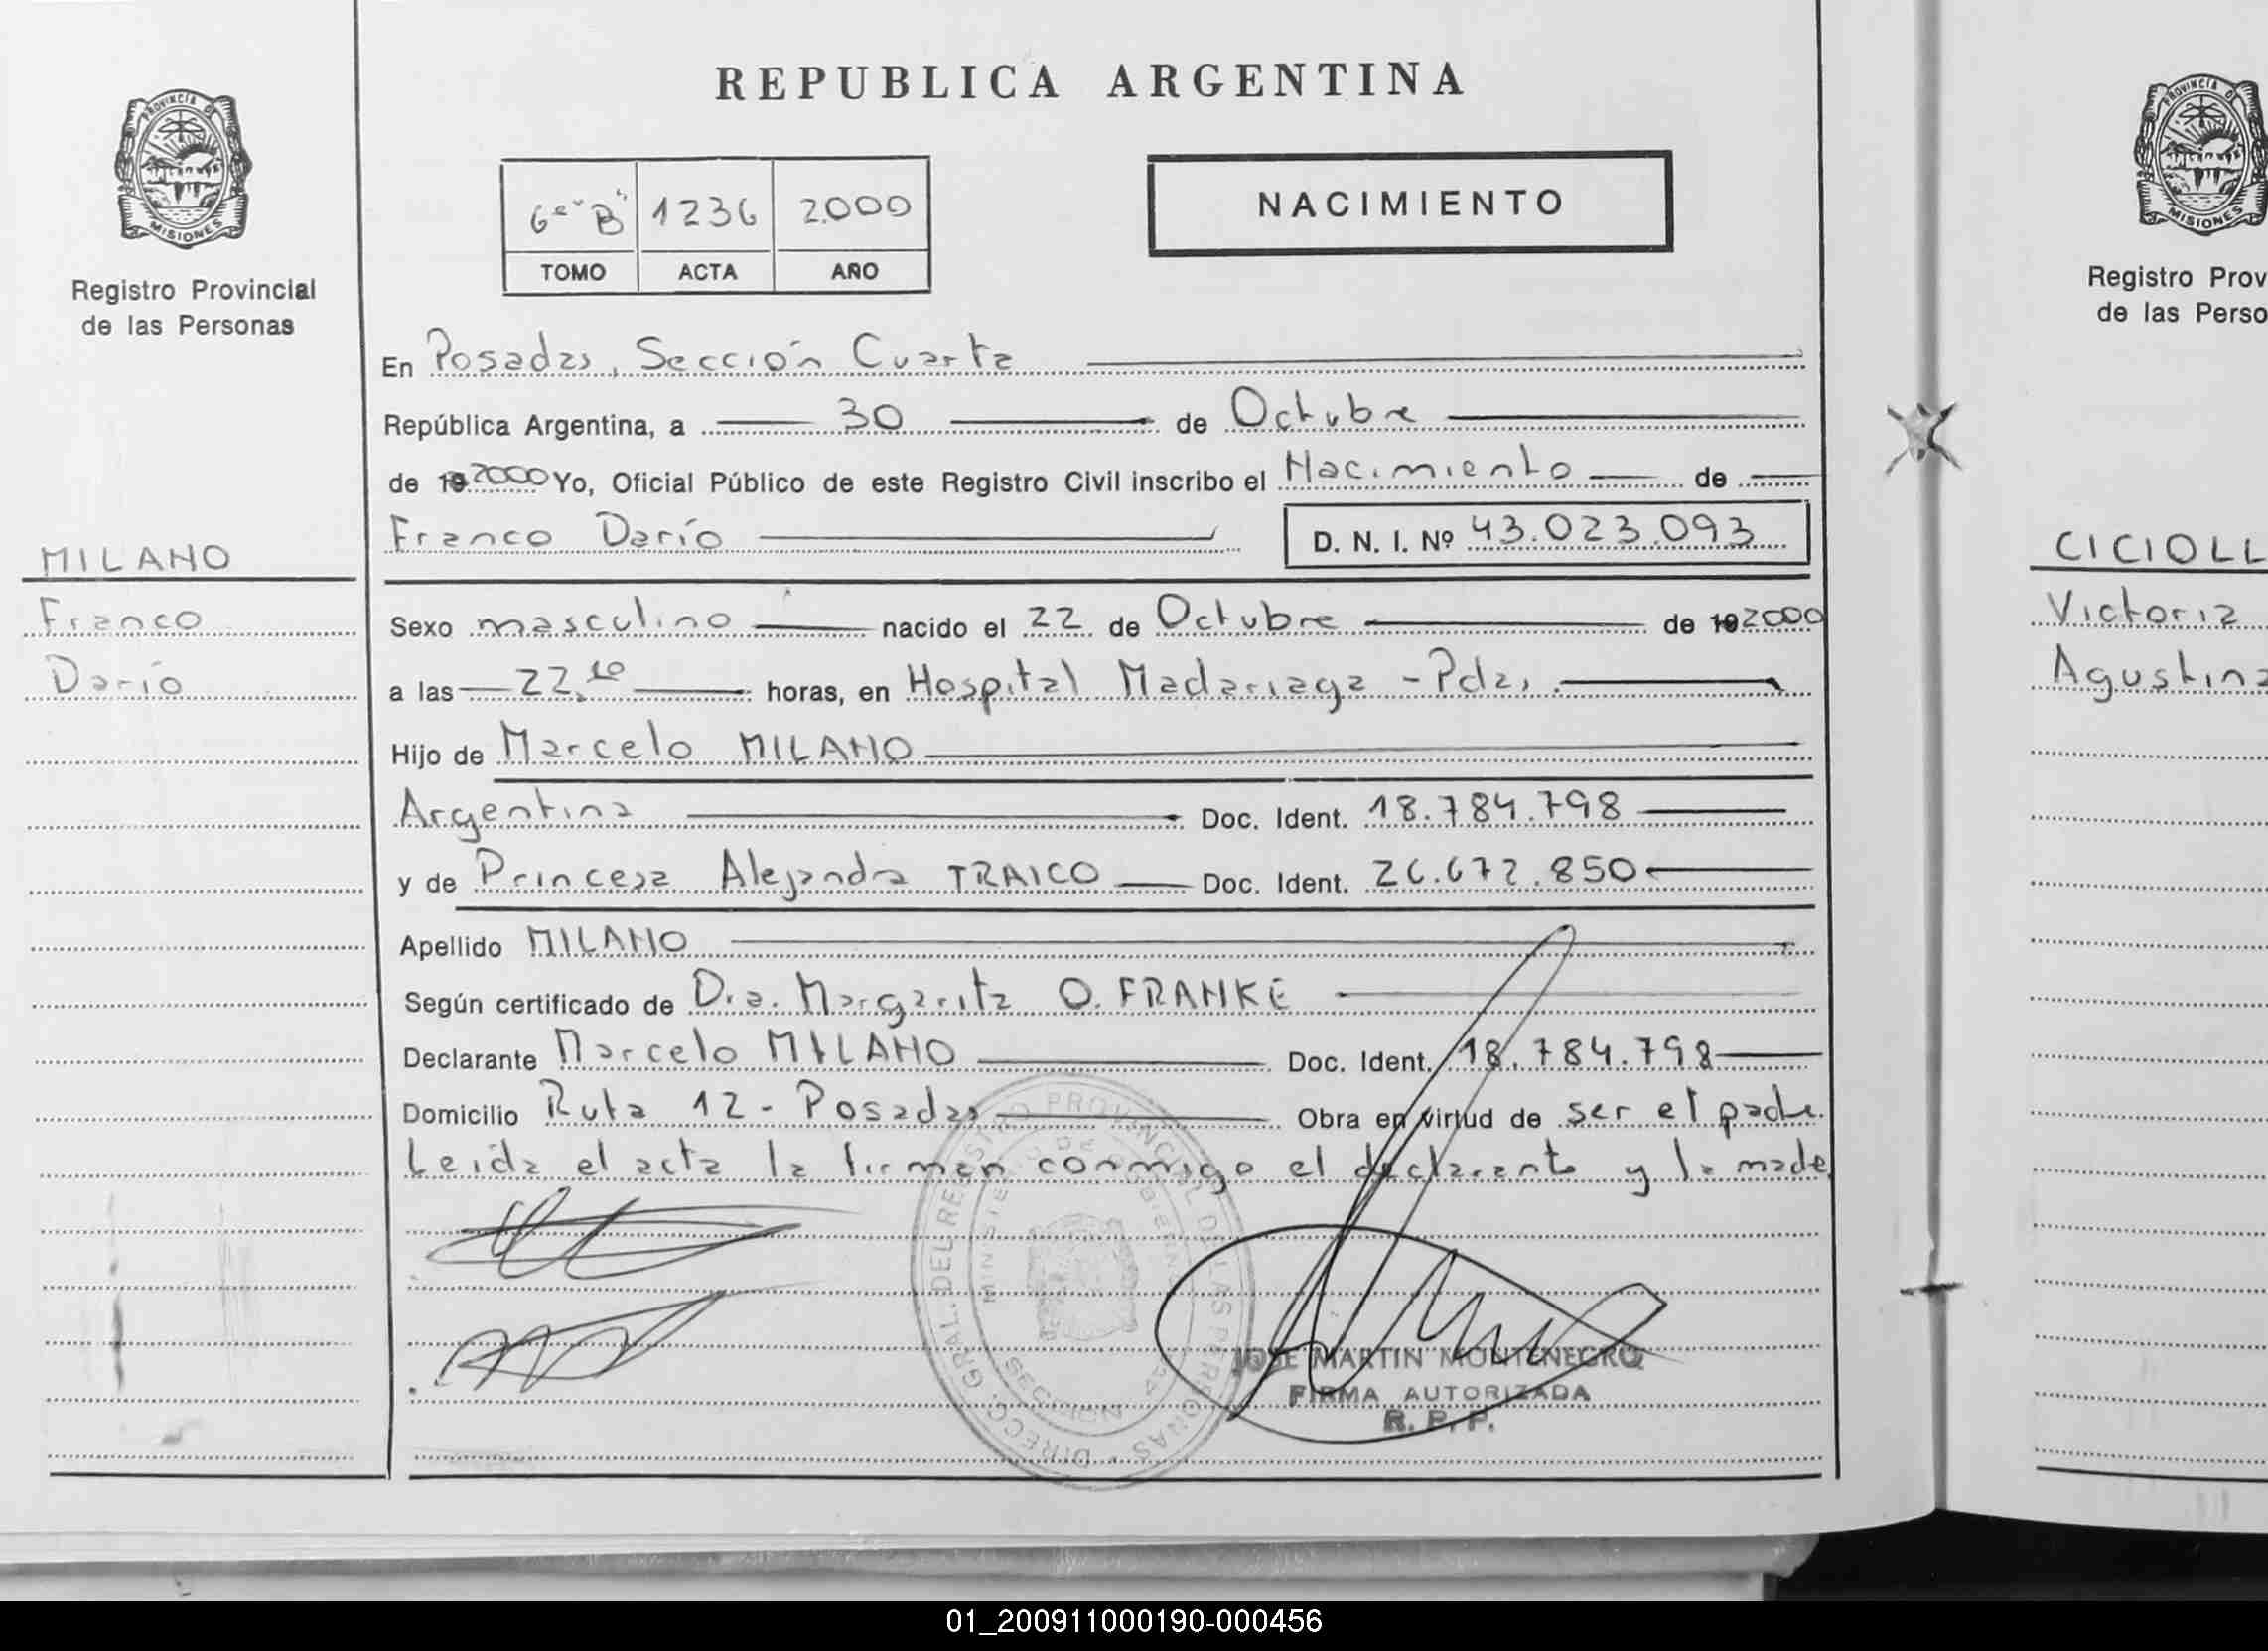 REPUBLICA ARGENTINA
PROVINCIA DE
MISIONES
Registro Provincial
de las Personas
6º "B" 1236 2000
TOMO ACTA AÑO
NACIMIENTO
En Posadas, Sección Cuarta
República Argentina, a 30 de Octubre
de 19 2000 Yo, Oficial Público de este Registro Civil inscribo el Nacimiento de
Franco Darío D. N. I. Nº 43.023.093
MILANO
Franco
Darío
Sexo masculino nacido el 22 de Octubre de 19 2000
a las 22.10 horas, en Hospital Madariaga - Pdas.
Hijo de Marcelo MILANO
Argentina Doc. Ident. 18.784.798
y de Princesa Alejandra TRAICO Doc. Ident. 26.672.850
Apellido MILANO
Según certificado de Dra. Margarita O. FRANKE
Declarante Marcelo MILANO Doc. Ident. 18.784.798
Domicilio Ruta 12 - Posadas Obra en virtud de ser el padre.
Leída el acta la firman conmigo el declarante y la madre.
DIRECC. GRAL. DEL REGISTRO PROVINCIAL DE LAS PERSONAS
MINISTERIO DE GOBIERNO
SECCION 4
JOSE MARTIN MONTENEGRO
FIRMA AUTORIZADA
R. P. P.
PROVINCIA DE
MISIONES
Registro Prov
de las Perso
CICIOLL
Victoria
Agustina
01_200911000190-000456